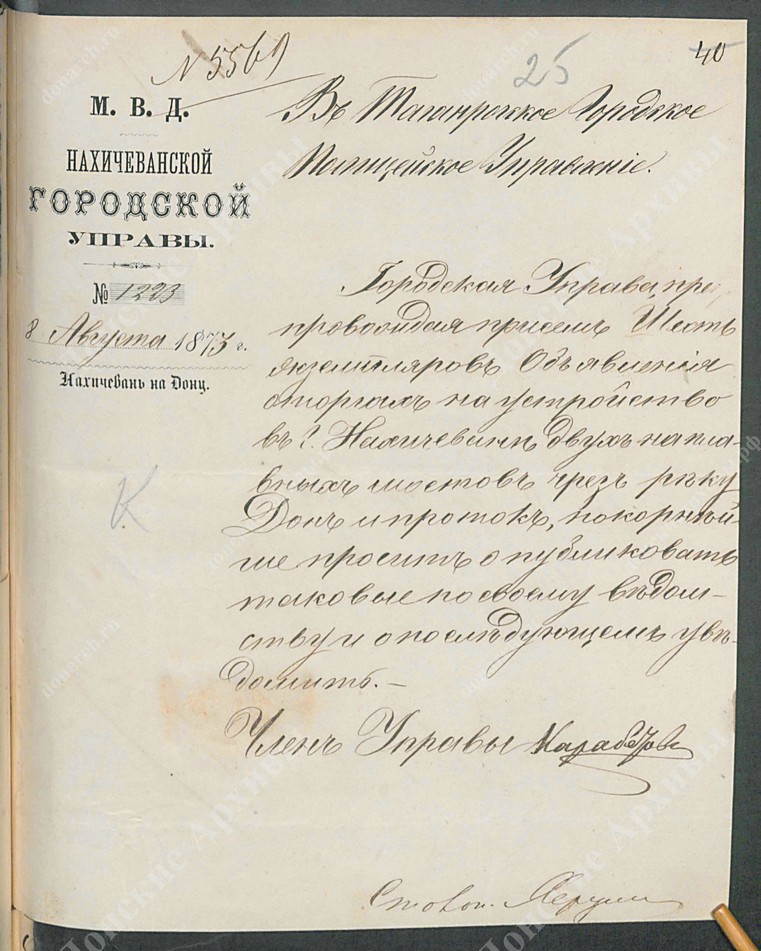 N 5569
25
40
М. В. Д.
НАХИЧЕВАНСКОЙ
ГОРОДСКОЙ
УПРАВЫ.
№ 1223
8 Августа 1873 г.
Нахичевань на Дону.
К
Въ Таганрогское Городское
Полицейское Управленіе.
Городская Управа, пре
провождая присемъ Шесть
экземпляровъ Объявленія
оторгахъ на устройство
въ г. Нахичевани двухъ напла-
вныхъ мостовъ чрезъ рѣку
Донъ и протокъ, покорнѣй-
ше проситъ опубликовать
таковые по своему вѣдом-
ству и о послѣдующемъ увѣ-
домить.-
Членъ Управы
Столон.
донские Архивы
donarch.ru